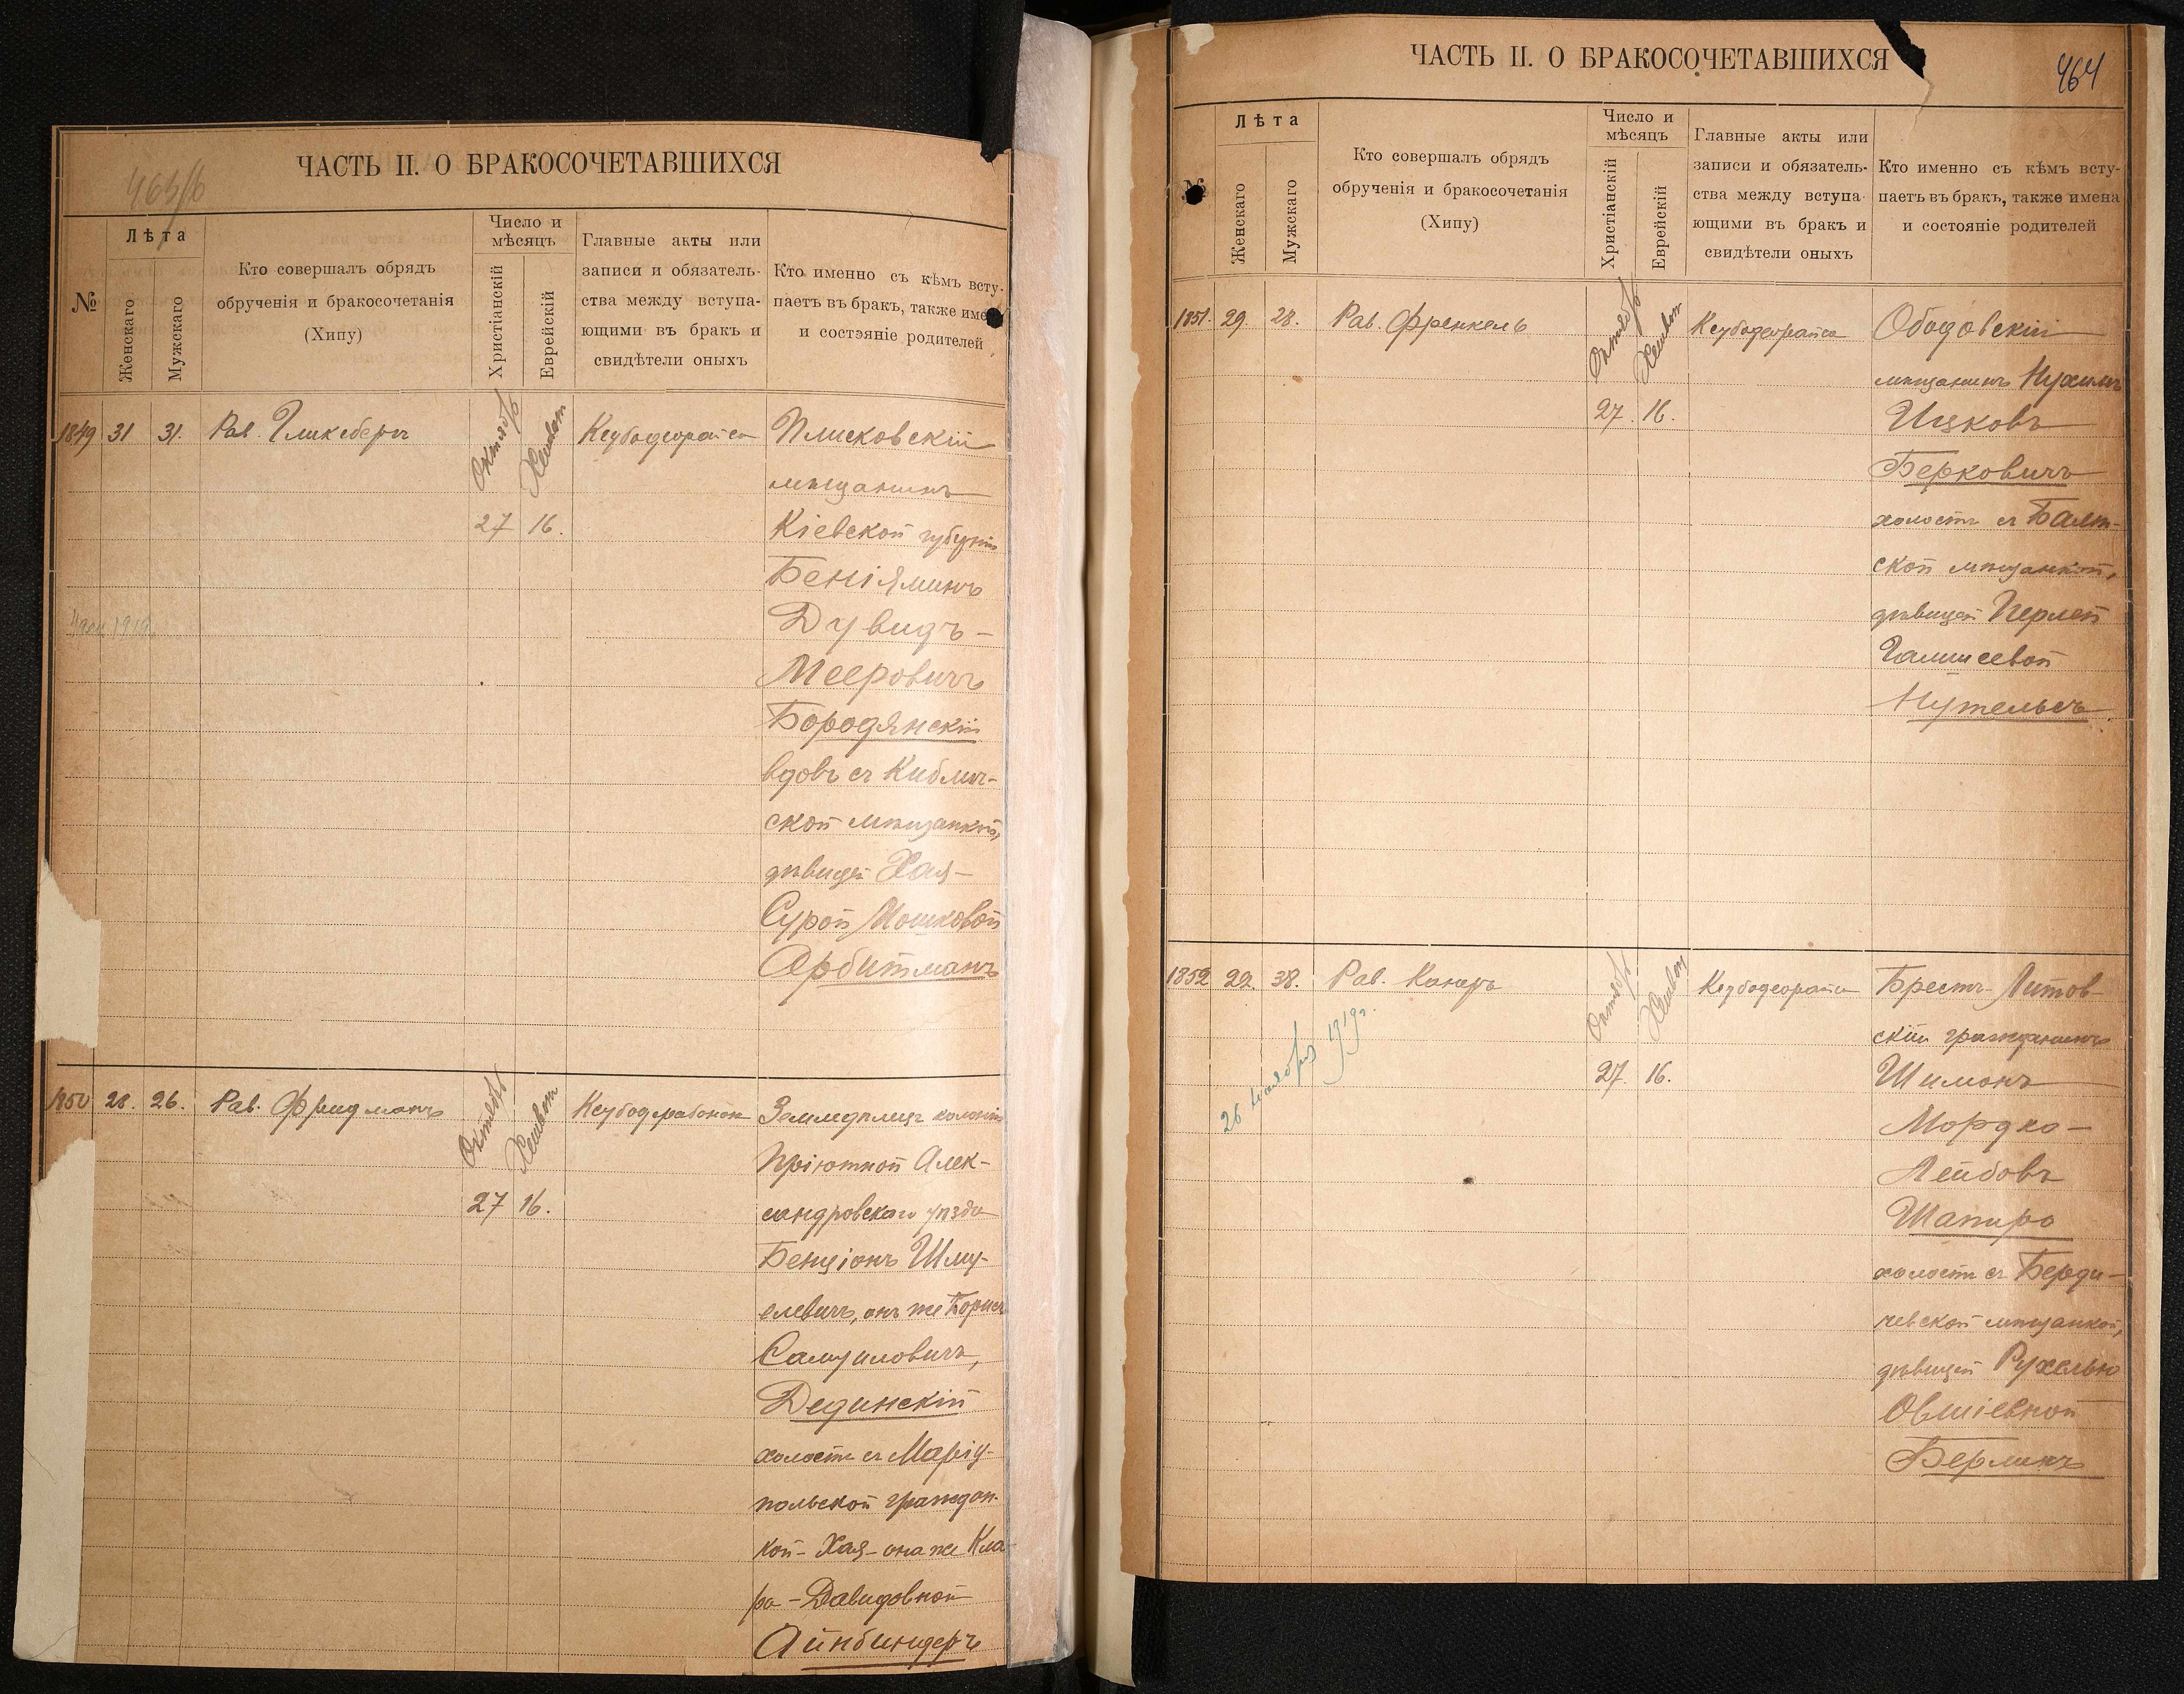 ЧАСТЬ II. О БРАКОСОЧЕТАВШИХСЯ
463/б
№
Лѣта
Женскаго
Мужскаго
Кто совершалъ обрядъ
обрученія и бракосочетанія
(Хипу)
Число и
мѣсяцъ
Христіанскій
Еврейскій
Главные акты или
записи и обязатель-
ства между вступа-
ющими въ бракъ и
свидѣтели оныхъ
Кто именно съ кѣмъ всту-
паетъ въ бракъ, также име
и состэяніе родителей
1849
31
31.
Рав. Гликсбергъ
Октябрь
27
Хешвон
16.
Ксубодеорайса
Плисковскій
мѣщанинъ
Кіевской губерніи
Беніяминъ
Дувидъ-
Мееровичъ
Бородянскій
вдовъ съ Киблич-
ской мѣщанкой,
дѣвицей Хая-
Сурой Мошковой
Арбитманъ
1850
28.
26.
Рав. Фридманъ
Октябрь
27
Хешвон
16.
Ксубодрабонон
Земледѣлецъ колоніи
Пріютной Алек-
сандровскаго уѣзда
Бенціонъ Шму-
елевичъ, онъ же Борисъ
Самуиловичъ,
Дединскій
холостъ съ Маріу-
польской граждан-
кой - Хая - она же Кла-
ра - Давидовной
Айнбиндеръ
ЧАСТЬ II. О БРАКОСОЧЕТАВШИХСЯ
464
№
Лѣта
Женскаго
Мужскаго
Кто совершалъ обрядъ
обрученія и бракосочетанія
(Хипу)
Число и
мѣсяцъ
Христіанскій
Еврейскій
Главные акты или
записи и обязатель-
ства между вступа-
ющими въ бракъ и
свидѣтели оныхъ
Кто именно съ кѣмъ всту-
паетъ въ бракъ, также имена
и состояніе родителей
1851.
29.
28.
Рав. Френкель
Октябрь
27.
Хешвон
16.
Ксубодеорайса
Ободовскій
мѣщанинъ Нухимъ
Ицковъ
Берковичъ
холостъ съ Балт-
ской мѣщанкой,
дѣвицей Перлей
Гамшеевой
Нутельсъ
1852
29.
38.
Рав. Канеръ
26 ноября 1919г.
Октябрь
27.
Хешвон
16.
Ксубодеорайса
Брестъ-Литов-
скій гражданинъ
Шимонъ
Мордко-
Лейбовъ
Шапиро
холостъ съ Берди-
чевской мѣщанкой,
дѣвицей Рухелью
Овшіевной
Берлинъ